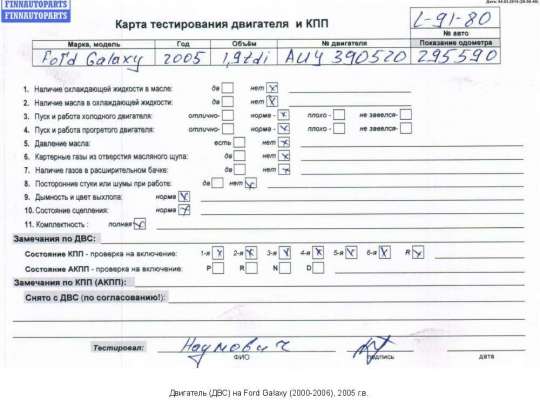 FINNAUTOPARTS
FINNAUTOPARTS
Карта тестирования двигателя и КПП
L-91-80
№ авто
Марка, модель Год Объём № двигателя Показание одометра
Ford Galaxy 2005 1,9tdi AUY 390520 295590
1. Наличие охлаждающей жидкости в масле: да нет x
2. Наличие масла в охлаждающей жидкости: да нет x
3. Пуск и работа холодного двигателя: отлично- норма - x плохо - не завелся-
4. Пуск и работа прогретого двигателя: отлично- норма - x плохо - не завелся-
5. Давление масла: есть нет x
6. Картерные газы из отверстия масляного щупа: да нет x
7. Наличие газов в расширительном бачке: да нет x
8. Посторонние стуки или шумы при работе: да нет x
9. Дымность и цвет выхлопа: норма x
10. Состояние сцепления: норма x
11. Комплектность : полная x
Замечания по ДВС:
Состояние КПП - проверка на включение: 1-я x 2-я x 3-я x 4-я x 5-я x 6-я x R x
Состояние АКПП - проверка на включение: P R N D
Замечания по КПП (АКПП):
Снято с ДВС (по согласованию!):
Тестировал: Наумович
ФИО подпись дата
Двигатель (ДВС) на Ford Galaxy (2000-2006), 2005 г.в.